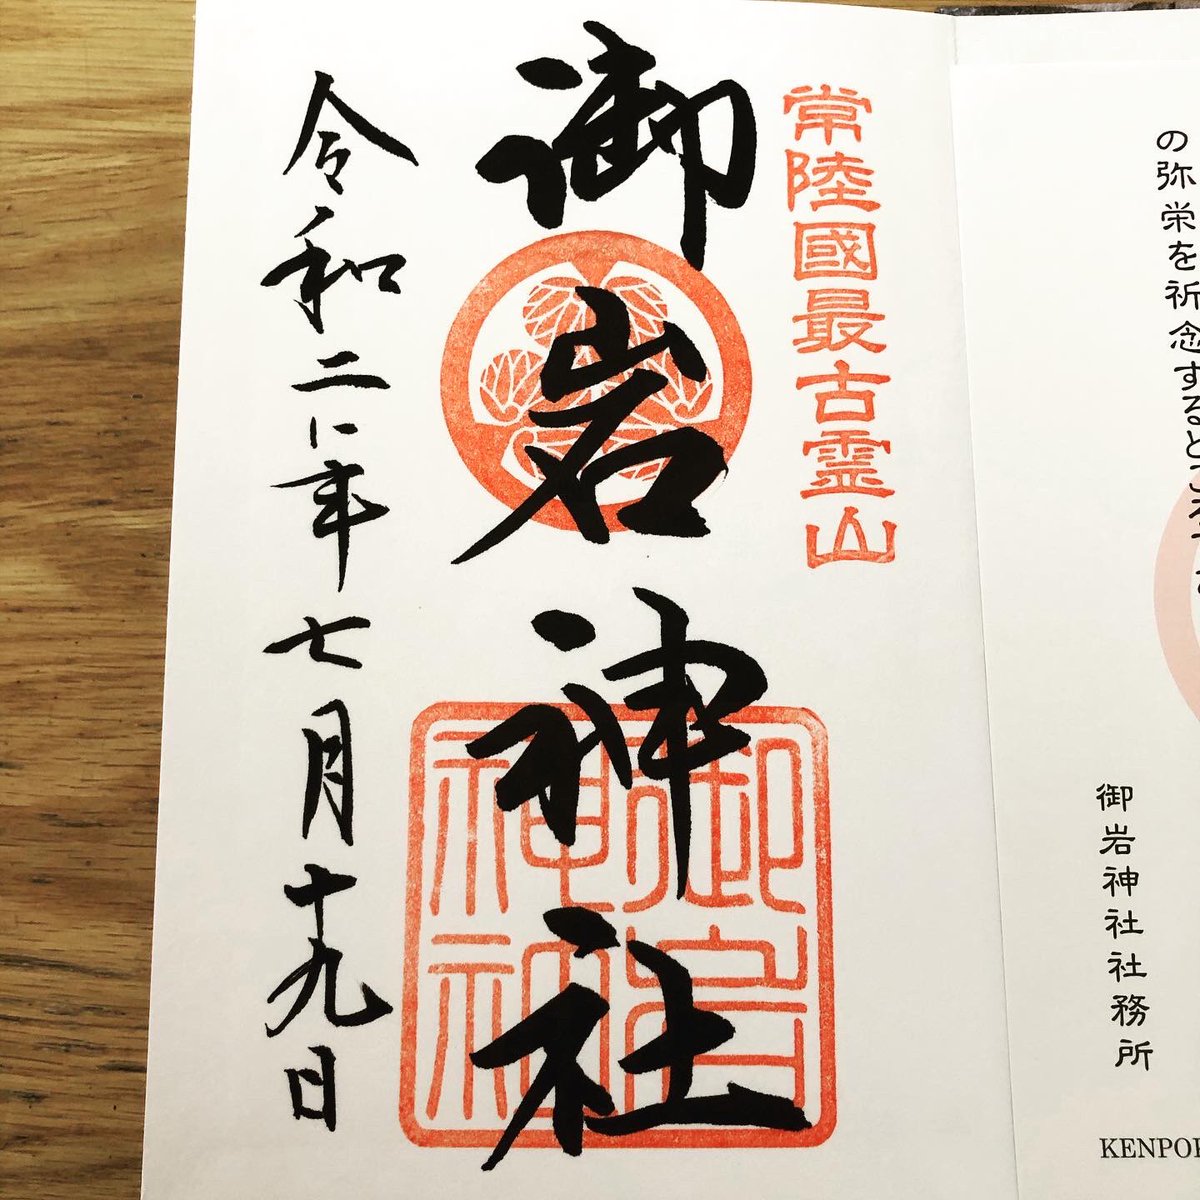 の弥栄を祈念するところです
御岩神社社務所
KENPO
常陸國最古霊山
御岩神社
令和二年七月十九日